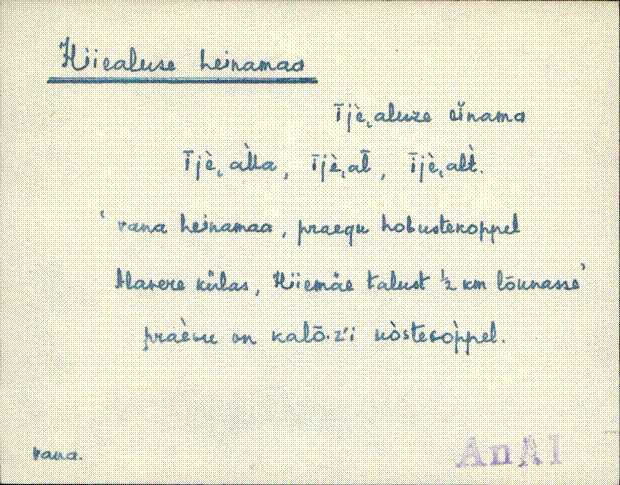 Hiiealuse heinamaa
ījè, aluze eĭnama
ījè, al̀l̀a, ījè, al̄, ījè, al̀t̀.
‘vana heinamaa, praegu hobustekoppel
Mavere külas, Hiiemäe talust ½ km lõunasse’
praèɢu on kalō·z'i
vana.
AnAI